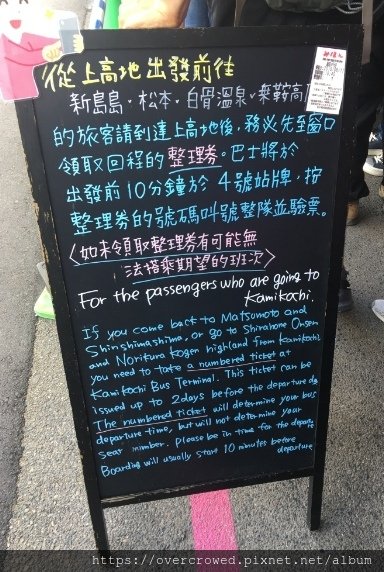 從上高地出發前往
新島島·松本·白骨溫泉·乘鞍高原
的旅客請到達上高地後,務必先至窗口
領取回程的整理券。巴士將於
出發前10分鐘於4號站牌,按
整理券的號碼叫號整隊並驗票。
〈如未領取整理券有可能無
法搭乘期望的班次〉
For the passengers who are going to
Kamikochi.
If you come back to Matsumoto and
Shinshimashima, or go to Shirahone Onsen
and Norikura Kogen highland from Kamikochi
you need to take a numbered ticket at
Kamikochi Bus Terminal. This ticket can be
issued up to 2days before the departure
The numbered ticket will determine your bus
departure time, but will not determine your
seat number. Please be in time for the
Boarding will usually start 10 minutes before
departure
https://overcrowed.pixnet.net/album